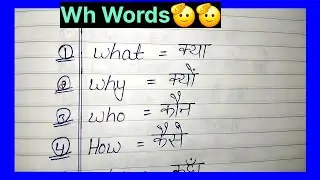 Wh Words🫡🫡
① what = क्या
② why = क्यों
③ who = कौन
④ How = कैसे